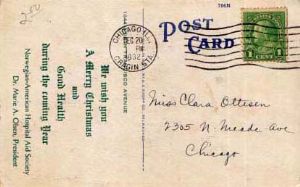 250
701H
POST
CARD
CHICAGO, ILL.
DEC 20
PM
1932
CRAGIN STA.
1
We wish you
A Merry Christmas
and
Good Health
during the coming Year
Norwegian-American Hospital Aid Society
Dr. Marie A. Olsen, President
Miss Clara Ottesen
2305 N. Meade Ave
Chicago